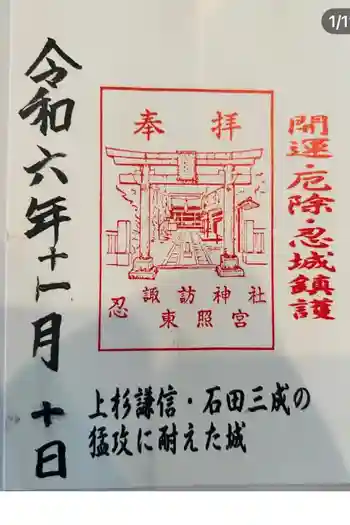 1/1
開運・厄除・忍城鎮護
奉拝
諏訪神社
忍
東照宮
上杉謙信・石田三成の
猛攻に耐えた城
令和六年十一月十日